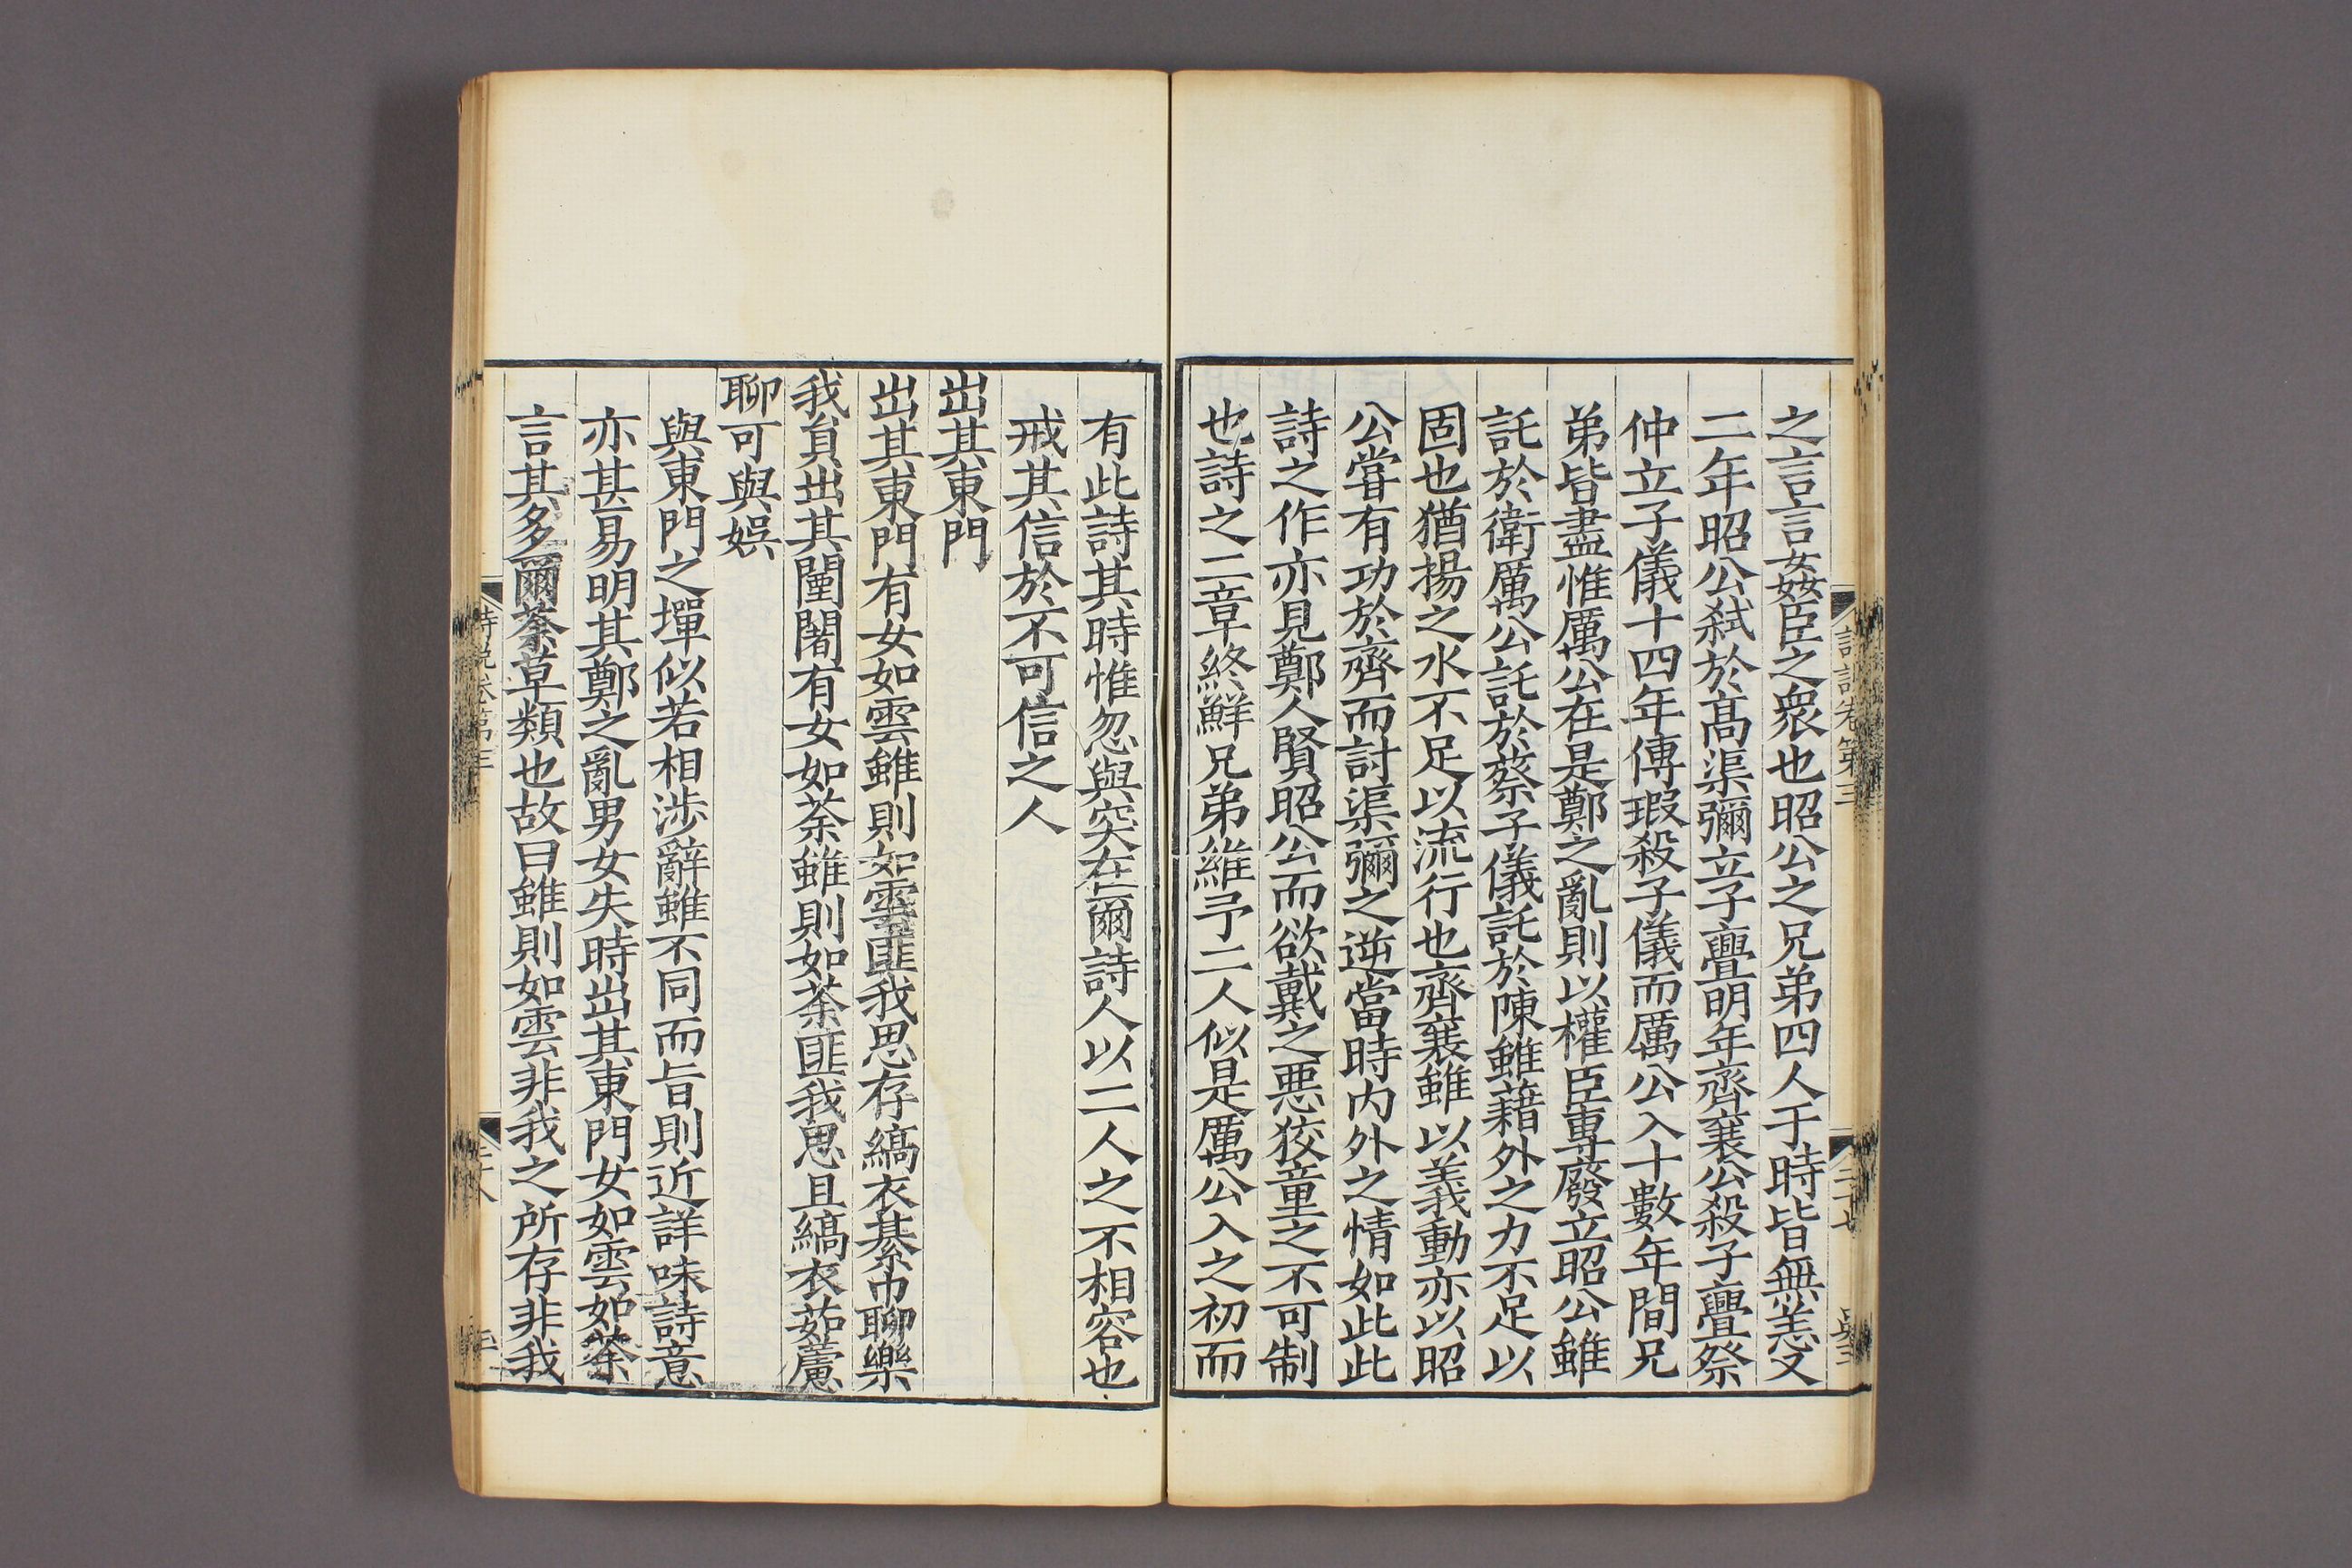 之言言姦臣之衆也昭公之兄弟四人于時皆無恙又
二年昭公弑於髙渠彌立子亹明年齊襄公殺子亹祭
仲立子儀十四年傅瑕殺子儀而厲公入十數年間兄
弟皆盡惟厲公在是鄭之亂則以權臣專廢立昭公雖
託於衛厲公託於蔡子儀託於陳雖藉外之力不足以
固也猶揚之水不足以流行也齊襄雖以義動亦以昭
公甞有功於齊而討渠彌之逆當時内外之情如此此
詩之作亦見鄭人賢昭公而欲戴之惡狡童之不可制
也詩之二章終鮮兄弟維予二人似是厲公入之初而
有此詩其時惟忽與突在爾詩人以二人之不相容也
戒其信於不可信之人
出其東門
出其東門有女如雲雖則如雲匪我思存縞衣綦巾聊樂
我貟出其闉闍有女如荼雖則如荼匪我思且縞衣茹藘
聊可與娛
與東門之墠似若相涉辭雖不同而旨則近詳味詩意
亦甚易明其鄭之亂男女失時出其東門女如雲如荼
言其多爾荼草類也故曰雖則如雲非我之所存非我
詩説卷第三
二十七
詩説卷第三
二十八